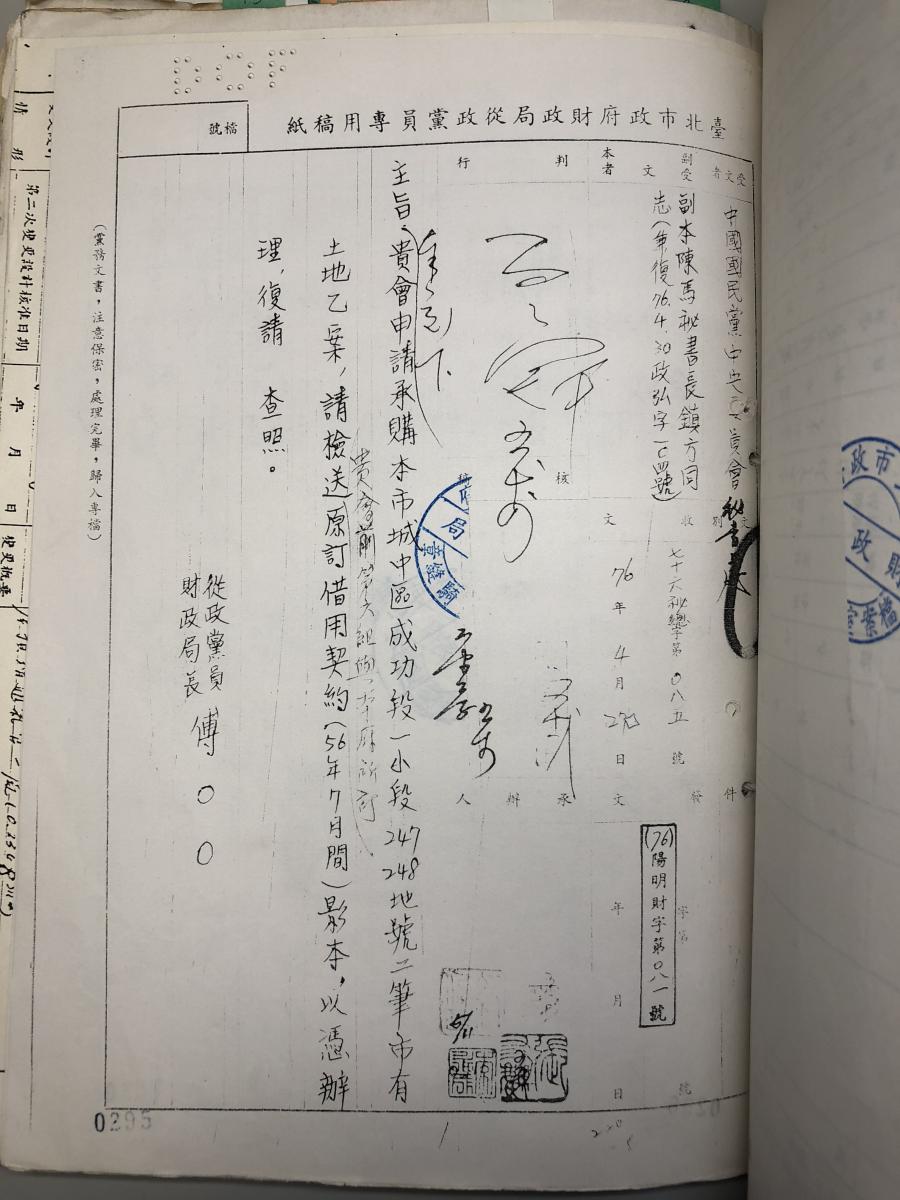 臺北市政府財政局從政黨員專用稿紙
檔號
受文者
中國國民黨中央委員會秘書處
副本受文者
副本陳馬秘書長鎮方同
志(兼復76.4.30政弘字一〇四號)
收文
76年4月 日
七十六秘總字第〇八五號
發文
字第 號
年 月 日
(76)陽明財字第〇八一號
判行
核
承辦人
主旨:貴會申請承購本市城中區成功段一小段247
248地號二筆市有
土地乙案,請檢送原訂借用契約(56年7月間)影本,以憑辦
貴會前第六組與本府所訂
理,復請 查照。
從政黨員
財政局長 傅〇〇
(黨務文書,注意保密,處理完畢,歸入專檔)
0295
第二次變更設計核准日期 年 月 日
變更概要
情形
騎縫章
局
市政
財政
檔案